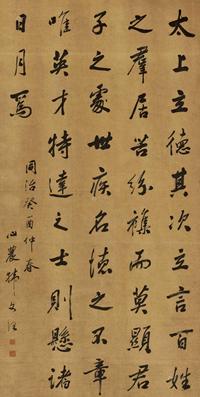 太上立德其次立言百姓
之羣居苦紛襍而莫顯君
子之處世疾名德之不章
唯英才特達之士則懸諸
日月焉
同治癸酉仲春
心農